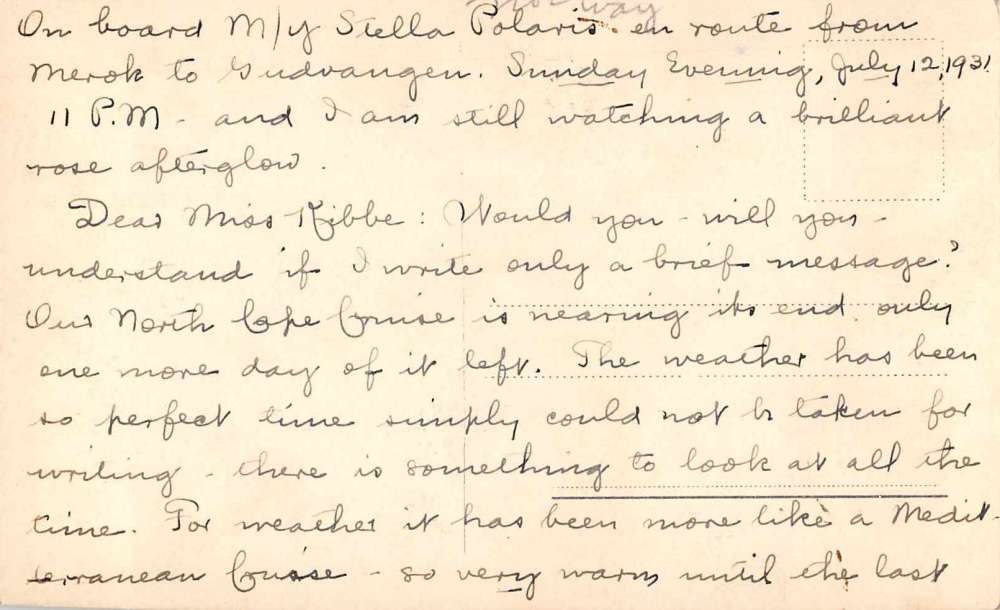 Norway
On board M/Y Stella Polaris en route from
Merok to Gudvangen. Sunday Evening, July 12, 1931
11 P.M - and I am still watching a brilliant
rose afterglow.
Dear Miss Kibbe: Would you - will you -
understand if I write only a brief message?
Our North Cape Cruise is nearing its end. only
one more day of it left. The weather has been
so perfect time simply could not be taken for
writing - there is something to look at all the
time. For weather it has been more like a Medit-
terranean Cruise - so very warm until the last